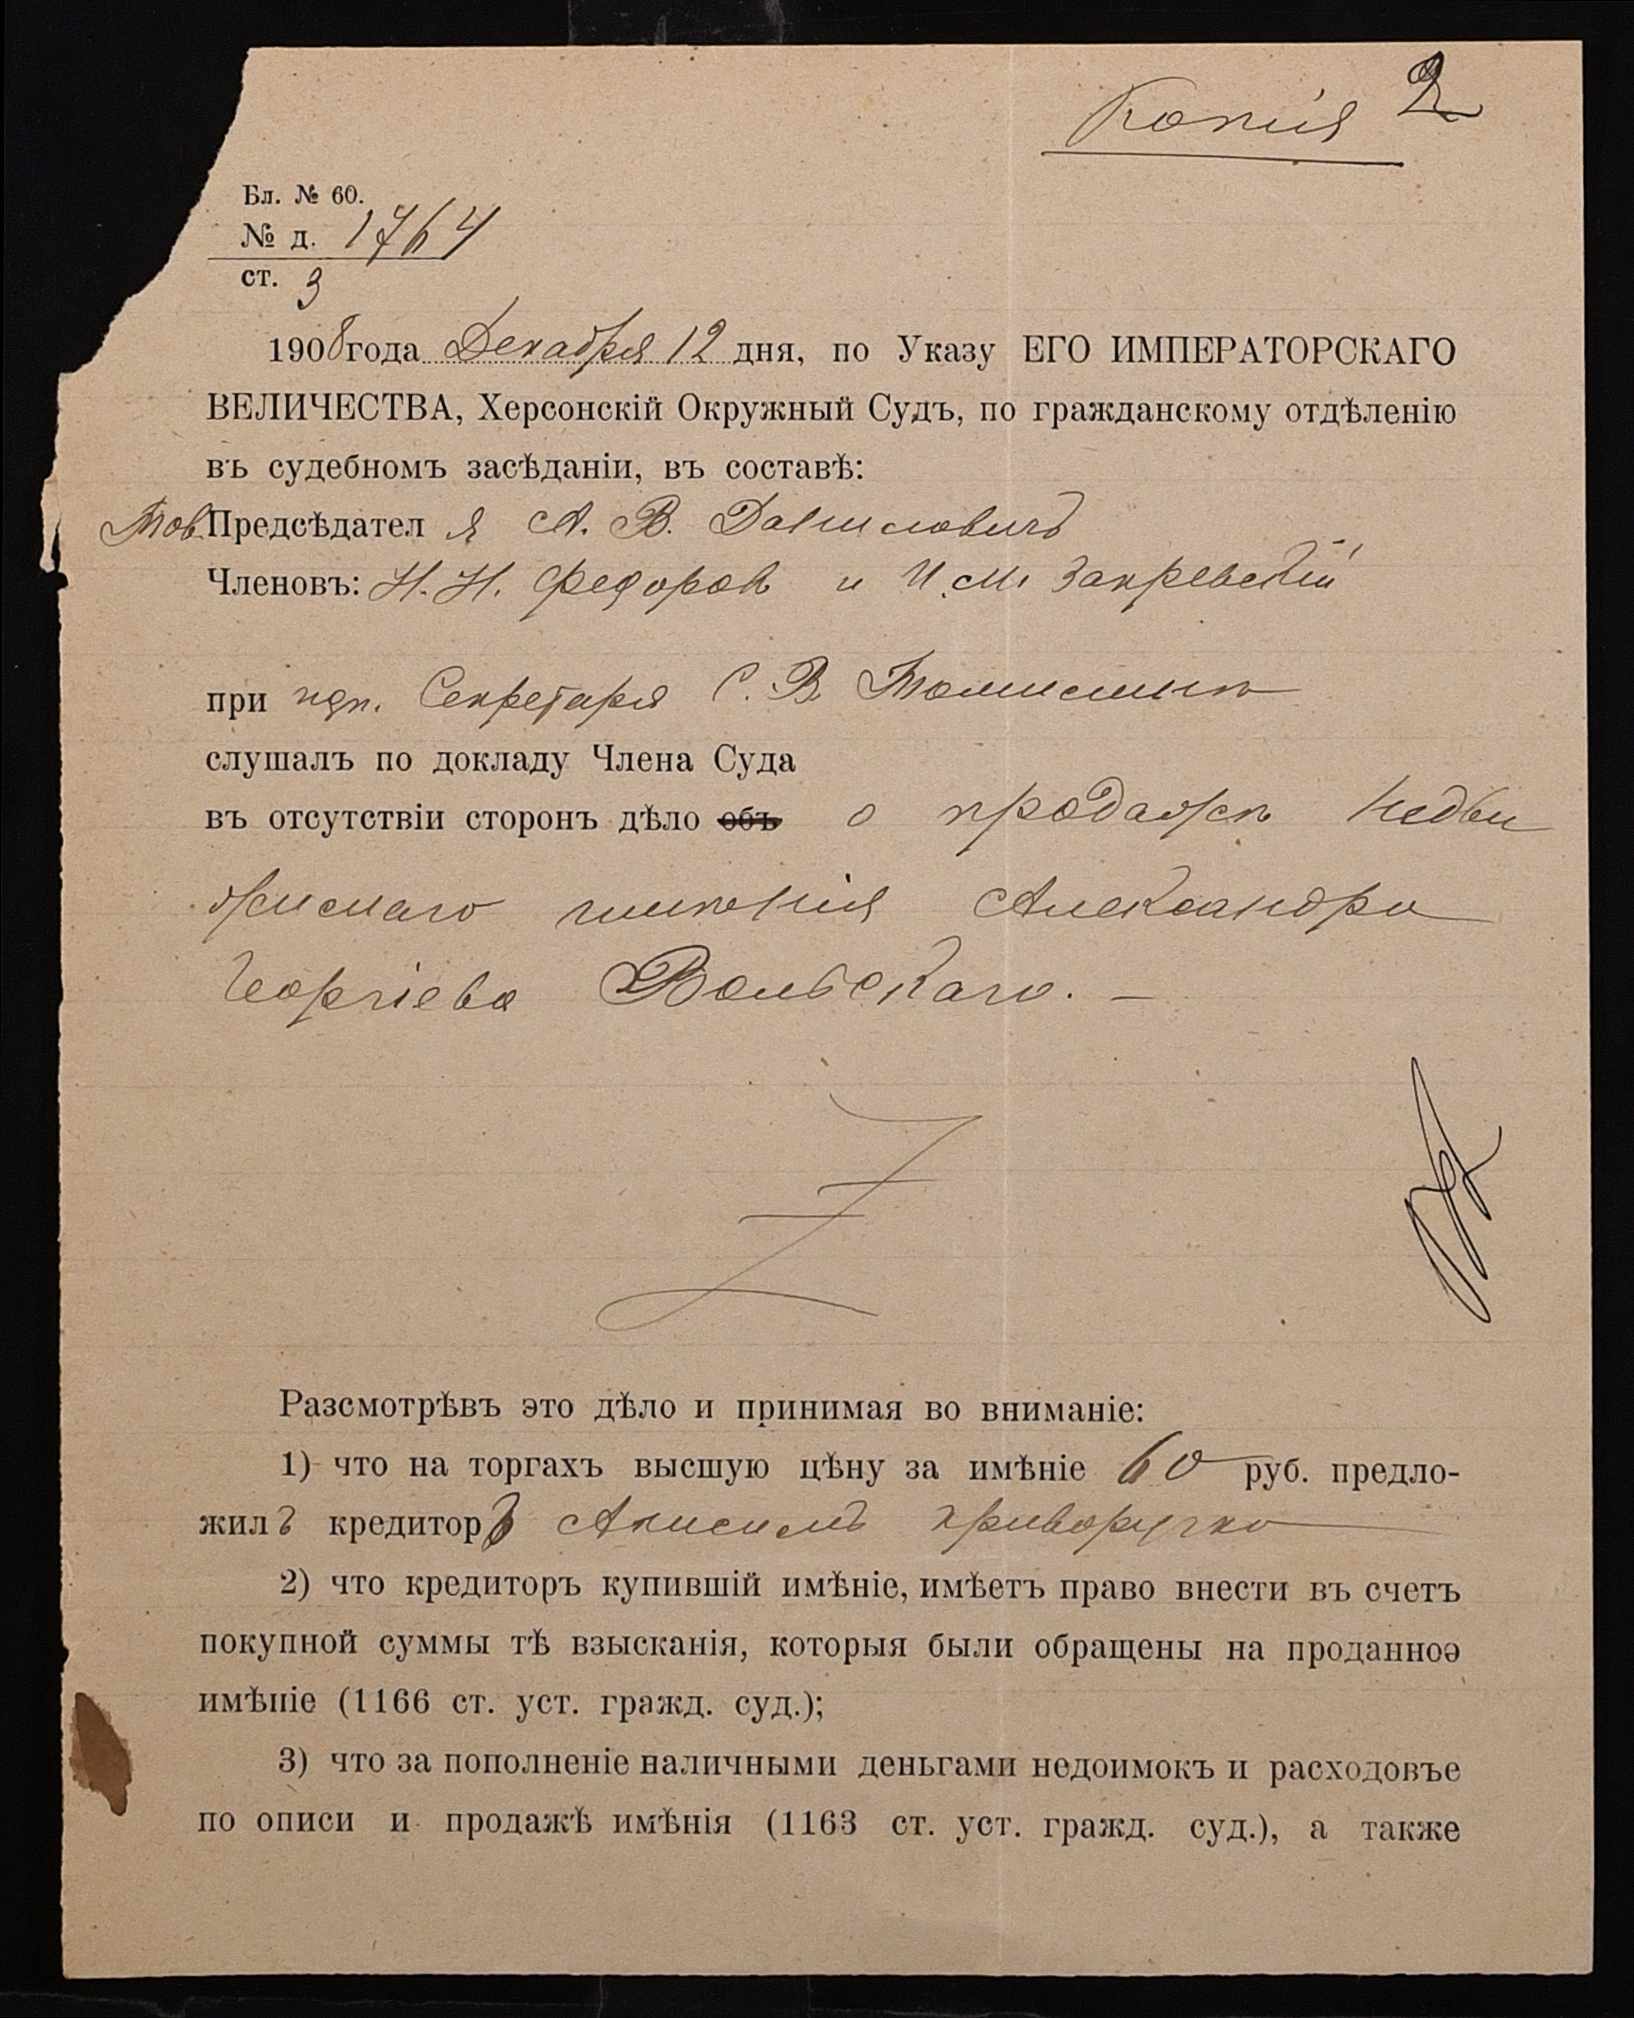 Копія 2
Бл. № 60.
№ д. 1764
ст. 3
1908 года Декабря 12 дня, по Указу ЕГО ИМПЕРАТОРСКАГО
ВЕЛИЧЕСТВА, Херсонскій Окружный Судъ, по гражданскому отдѣленію
въ судебномъ засѣданіи, въ составѣ:
Тов. Предсѣдателя А. В. Даниловичъ
Членовъ: Н. Н. Федоровъ и И. М. Закревскій
при Секретаря С. В.
слушалъ по докладу Члена Суда
въ отсутствіи сторонъ дѣло объ о продажѣ недви
жимаго имѣнія Александра
Георгіева Вольскаго. —
Разсмотрѣвъ это дѣло и принимая во вниманіе:
1) что на торгахъ высшую цѣну за имѣніе 60 руб. предло-
жилъ кредиторъ Анисимъ Криворучко
2) что кредиторъ купившій имѣніе, имѣетъ право внести въ счетъ
покупной суммы тѣ взысканія, которыя были обращены на проданноэ
имѣніе (1166 ст. уст. гражд. суд.);
3) что за пополненіе наличными деньгами недоимокъ и расходовъе
по описи и продажѣ имѣнія (1163 ст. уст. гражд. суд.), а также